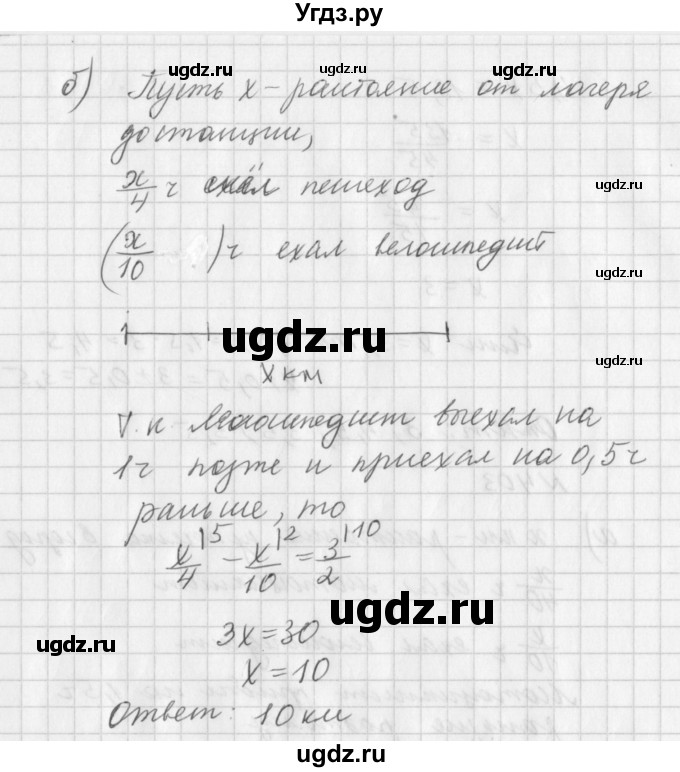 Угдз.ру
ugdz.ru ugdz.ru
б) Пусть x - растояние от лагеря
до станции,
x/4 ч ехал пешеход
ugdz.ru ugdz.ru
(x/10 )ч ехал велосипедист
ugdz.ru
x км
Т.к велосипедист выехал на
1ч позже и приехал на 0,5ч
раньше, то
ugdz.ru ugdz.ru
x/4 |5 - x/10 |2 = 3/2 |10
ugdz.ru
3x = 30
ugdz.ru ugdz.ru
x = 10
Ответ: 10 км
ugdz.ru